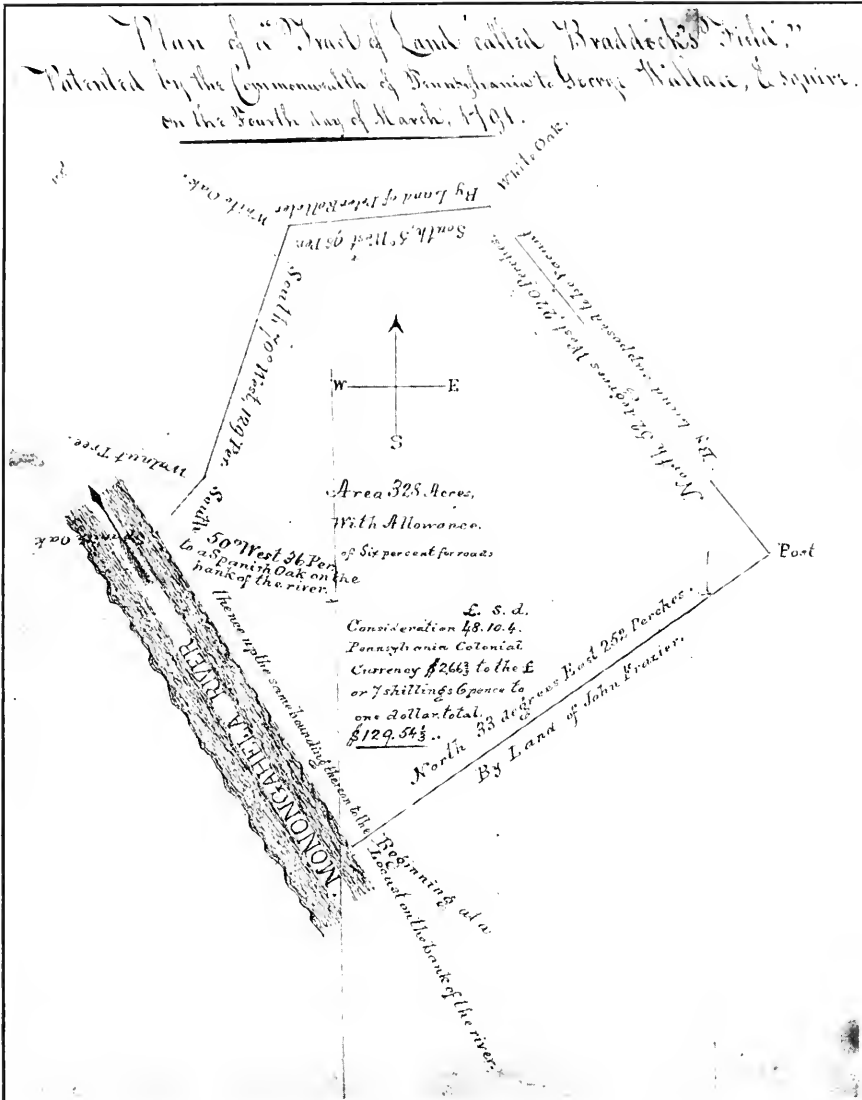 Plan of a "Tract of Land called Braddock's Field,"
Patented by the Commonwealth of Pennsylvania to George Wallace, Esquire.
on the Fourth day of March, 1791.
White Oak.
By Land of Peter
White Oak.
South, 5° West 96 Per.
By Land supposed to be Vacant
North 52 degrees West, 220 Perches.
South 70° West, 129 Per.
W E
S
Walnut Tree.
Spanish Oak
South 50° West 36 Per.
to a Spanish Oak on the
bank of the river.
Area 328 Acres,
With Allowance.
of Six per cent for roads
Post
£. s. d.
Consideration 48.10.4.
Pennsylvania Colonial
Currency $2.66⅔ to the £
or 7 shillings 6 pence to
one dollar. total.
$129.54⅓ ..
North 33 degrees East 252 Perches.
By Land of John Frazier.
thence up the same bounding thereon to the
MONONGAHELA RIVER
Beginning at a
Locust on the bank of the river.